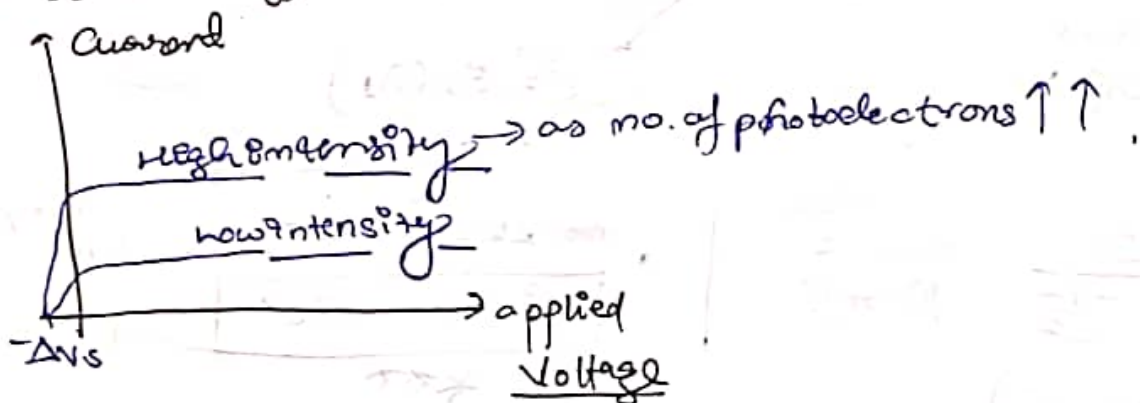 Current
High intensity → as no. of photoelectrons ↑ ↑ .
Low intensity
→ applied
Voltage
-ΔVs